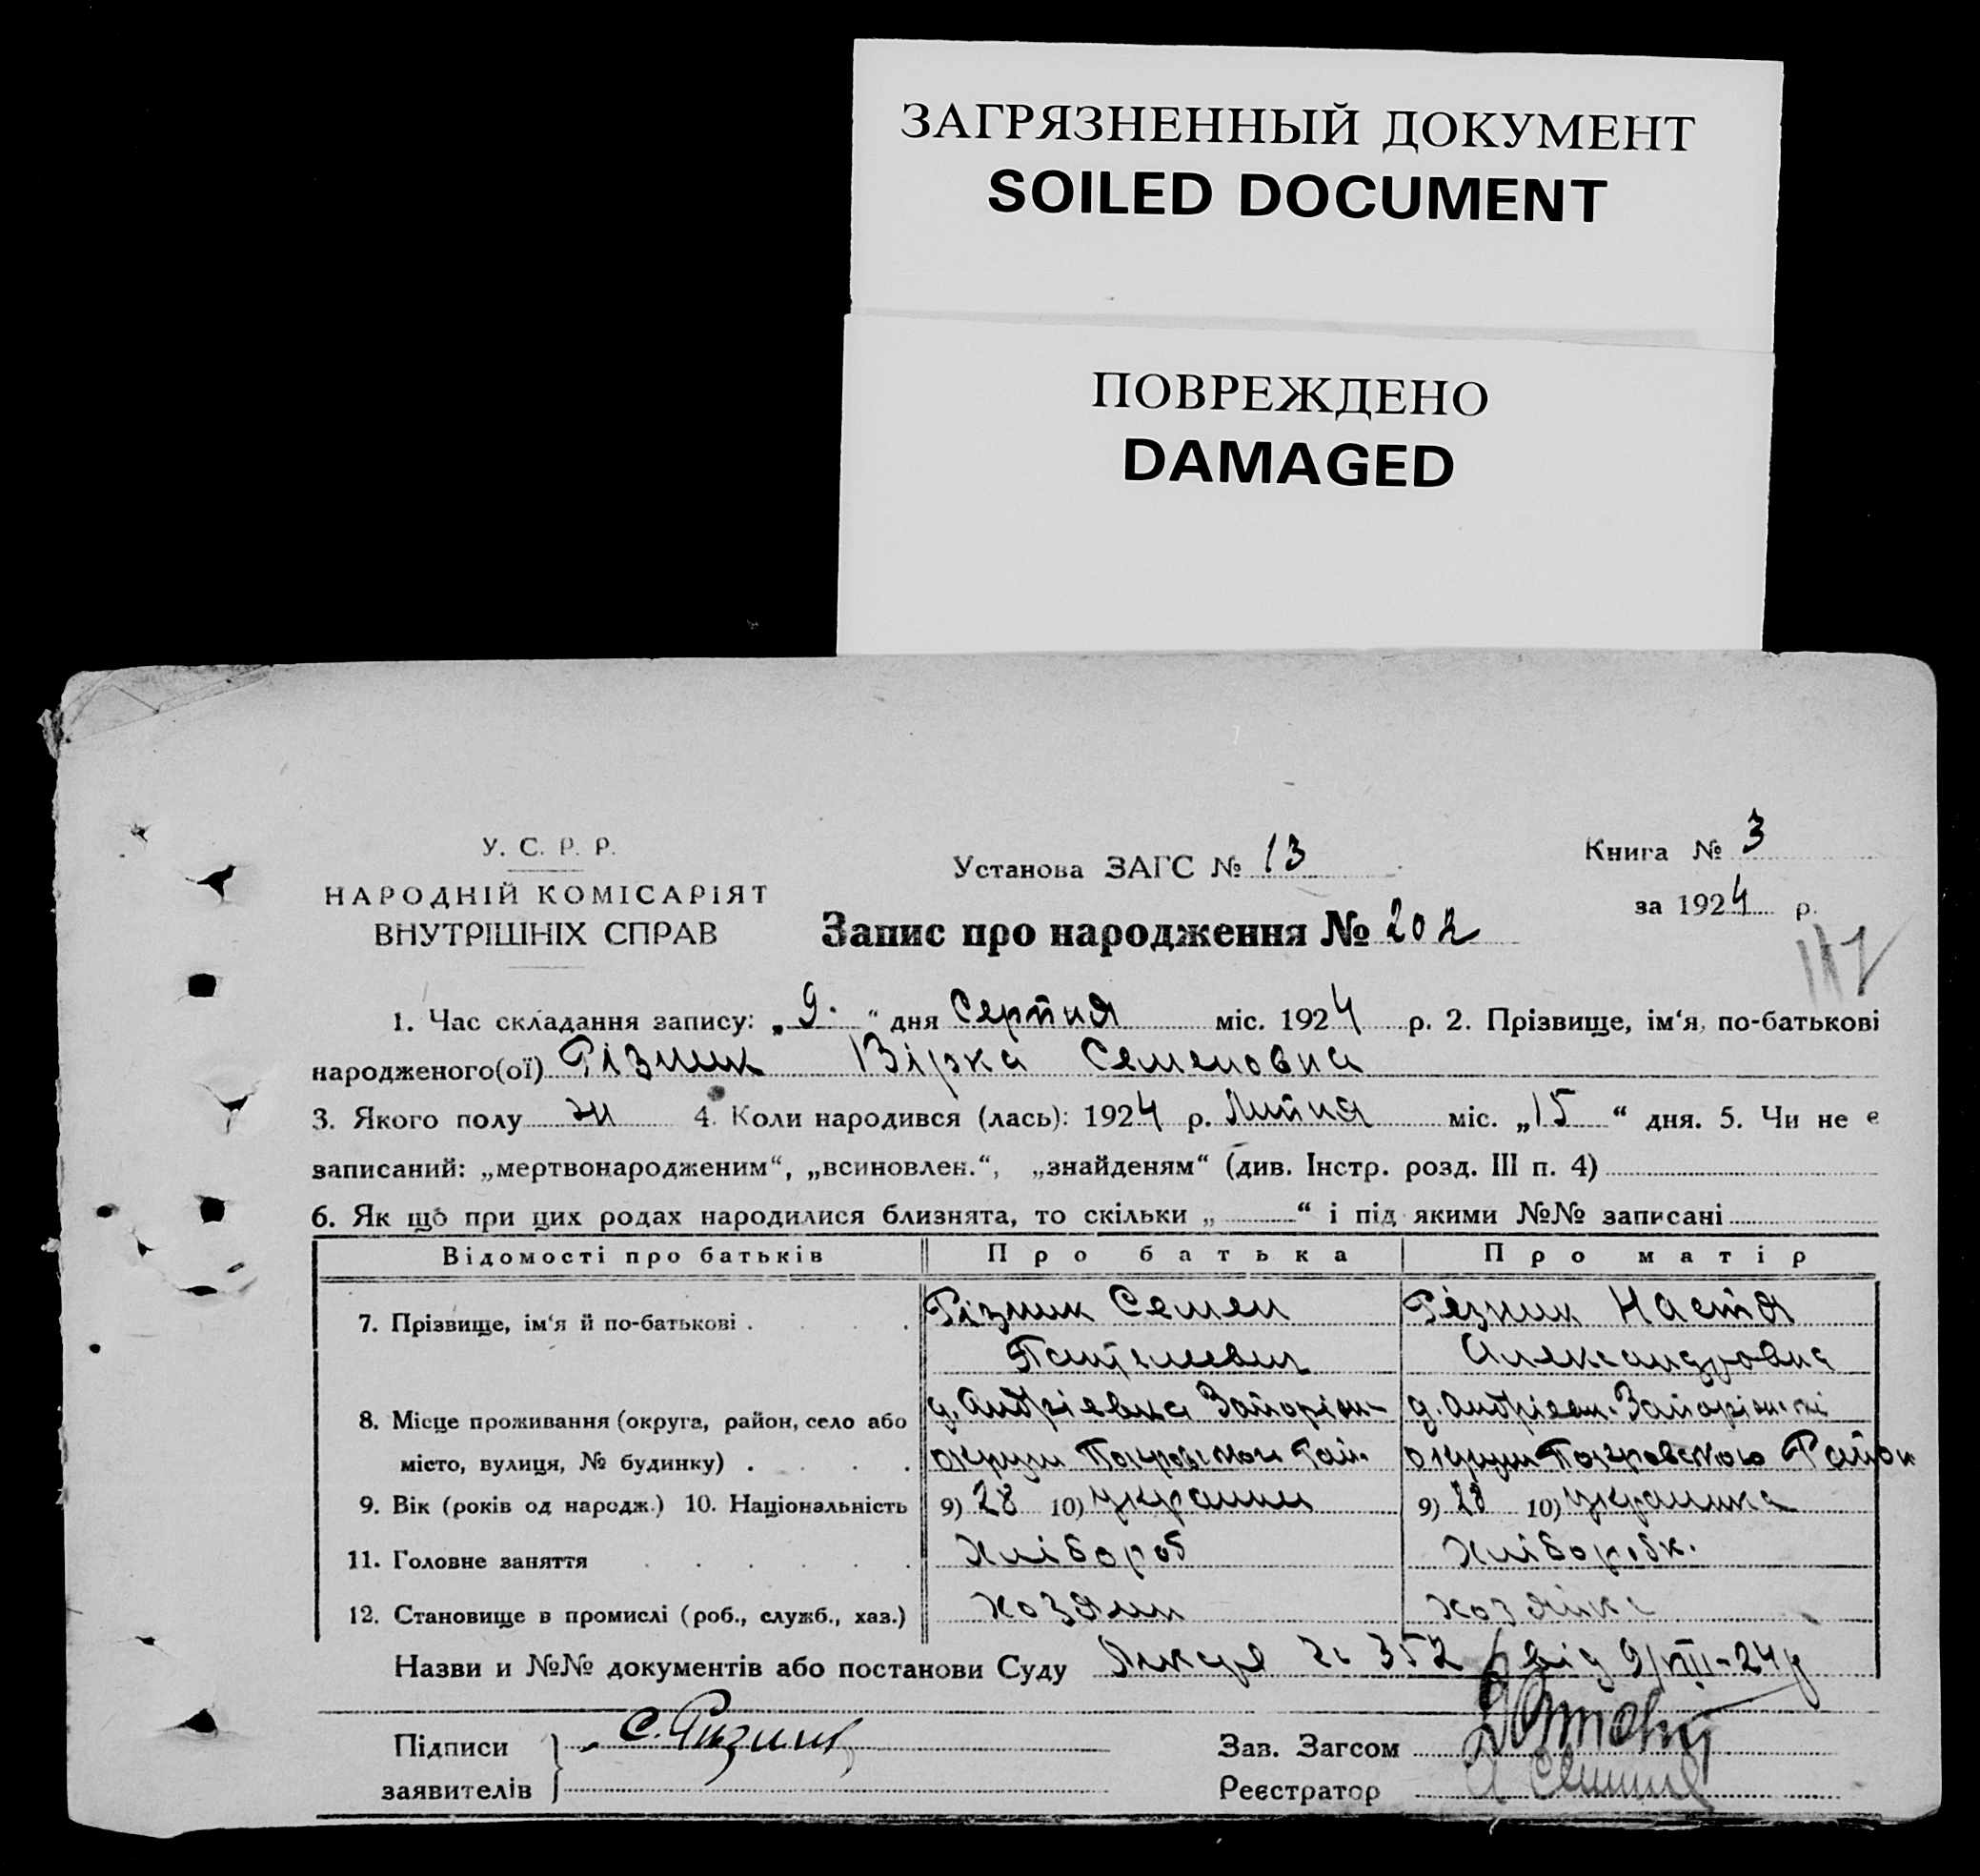 ЗАГРЯЗНЕННЫЙ ДОКУМЕНТ
SOILED DOCUMENT
ПОВРЕЖДЕНО
DAMAGED
У. С. Р. Р.
НАРОДНІЙ КОМІСАРІЯТ
ВНУТРІШНІХ СПРАВ
Установа ЗАГС № 13
Книга № 3
за 1924 р.
Запис про народження № 202
117
1. Час складання запису: „9.“ дня Серпня міс. 1924 р. 2. Прізвище, ім‘я, по-батькові
народженого(ої) Різник Вірка Семеновна
3. Якого полу жі 4. Коли народився (лась): 1924 р. Липня міс. „15“ дня. 5. Чи не є
записаний: „мертвонародженим“, „всиновлен.“, „знайденям“ (див. Інстр. розд. III п. 4)
6. Як що при цих родах народилися близнята, то скільки „ “ і під якими №№ записані
Відомості про батьків Про батька Про матір
7. Прізвище, ім‘я й по-батькові . . . . Різник Семен Різник Настя
Пантелеевич Александровна
8. Місце проживання (округа, район, село або д. Андрієвка Запоріж- д. Андрієвк. Запоріжскі
місто, вулиця, № будинку) . . . . округи Покровскои Рай. округи Покровского Район
9. Вік (років од народж.) 10. Національність 9) 28 10) украинец 9) 28 10) украинка
11. Головне заняття . . . . . Хлібороб Хліборобк.
12. Становище в промислі (роб., служб., хаз.) хозяин хозяйка
Назви и №№ документів або постанови Суду 352 від 9/VIII-24р
Підписи
заявителів
С. Ризник
Зав. Загсом
Реєстратор